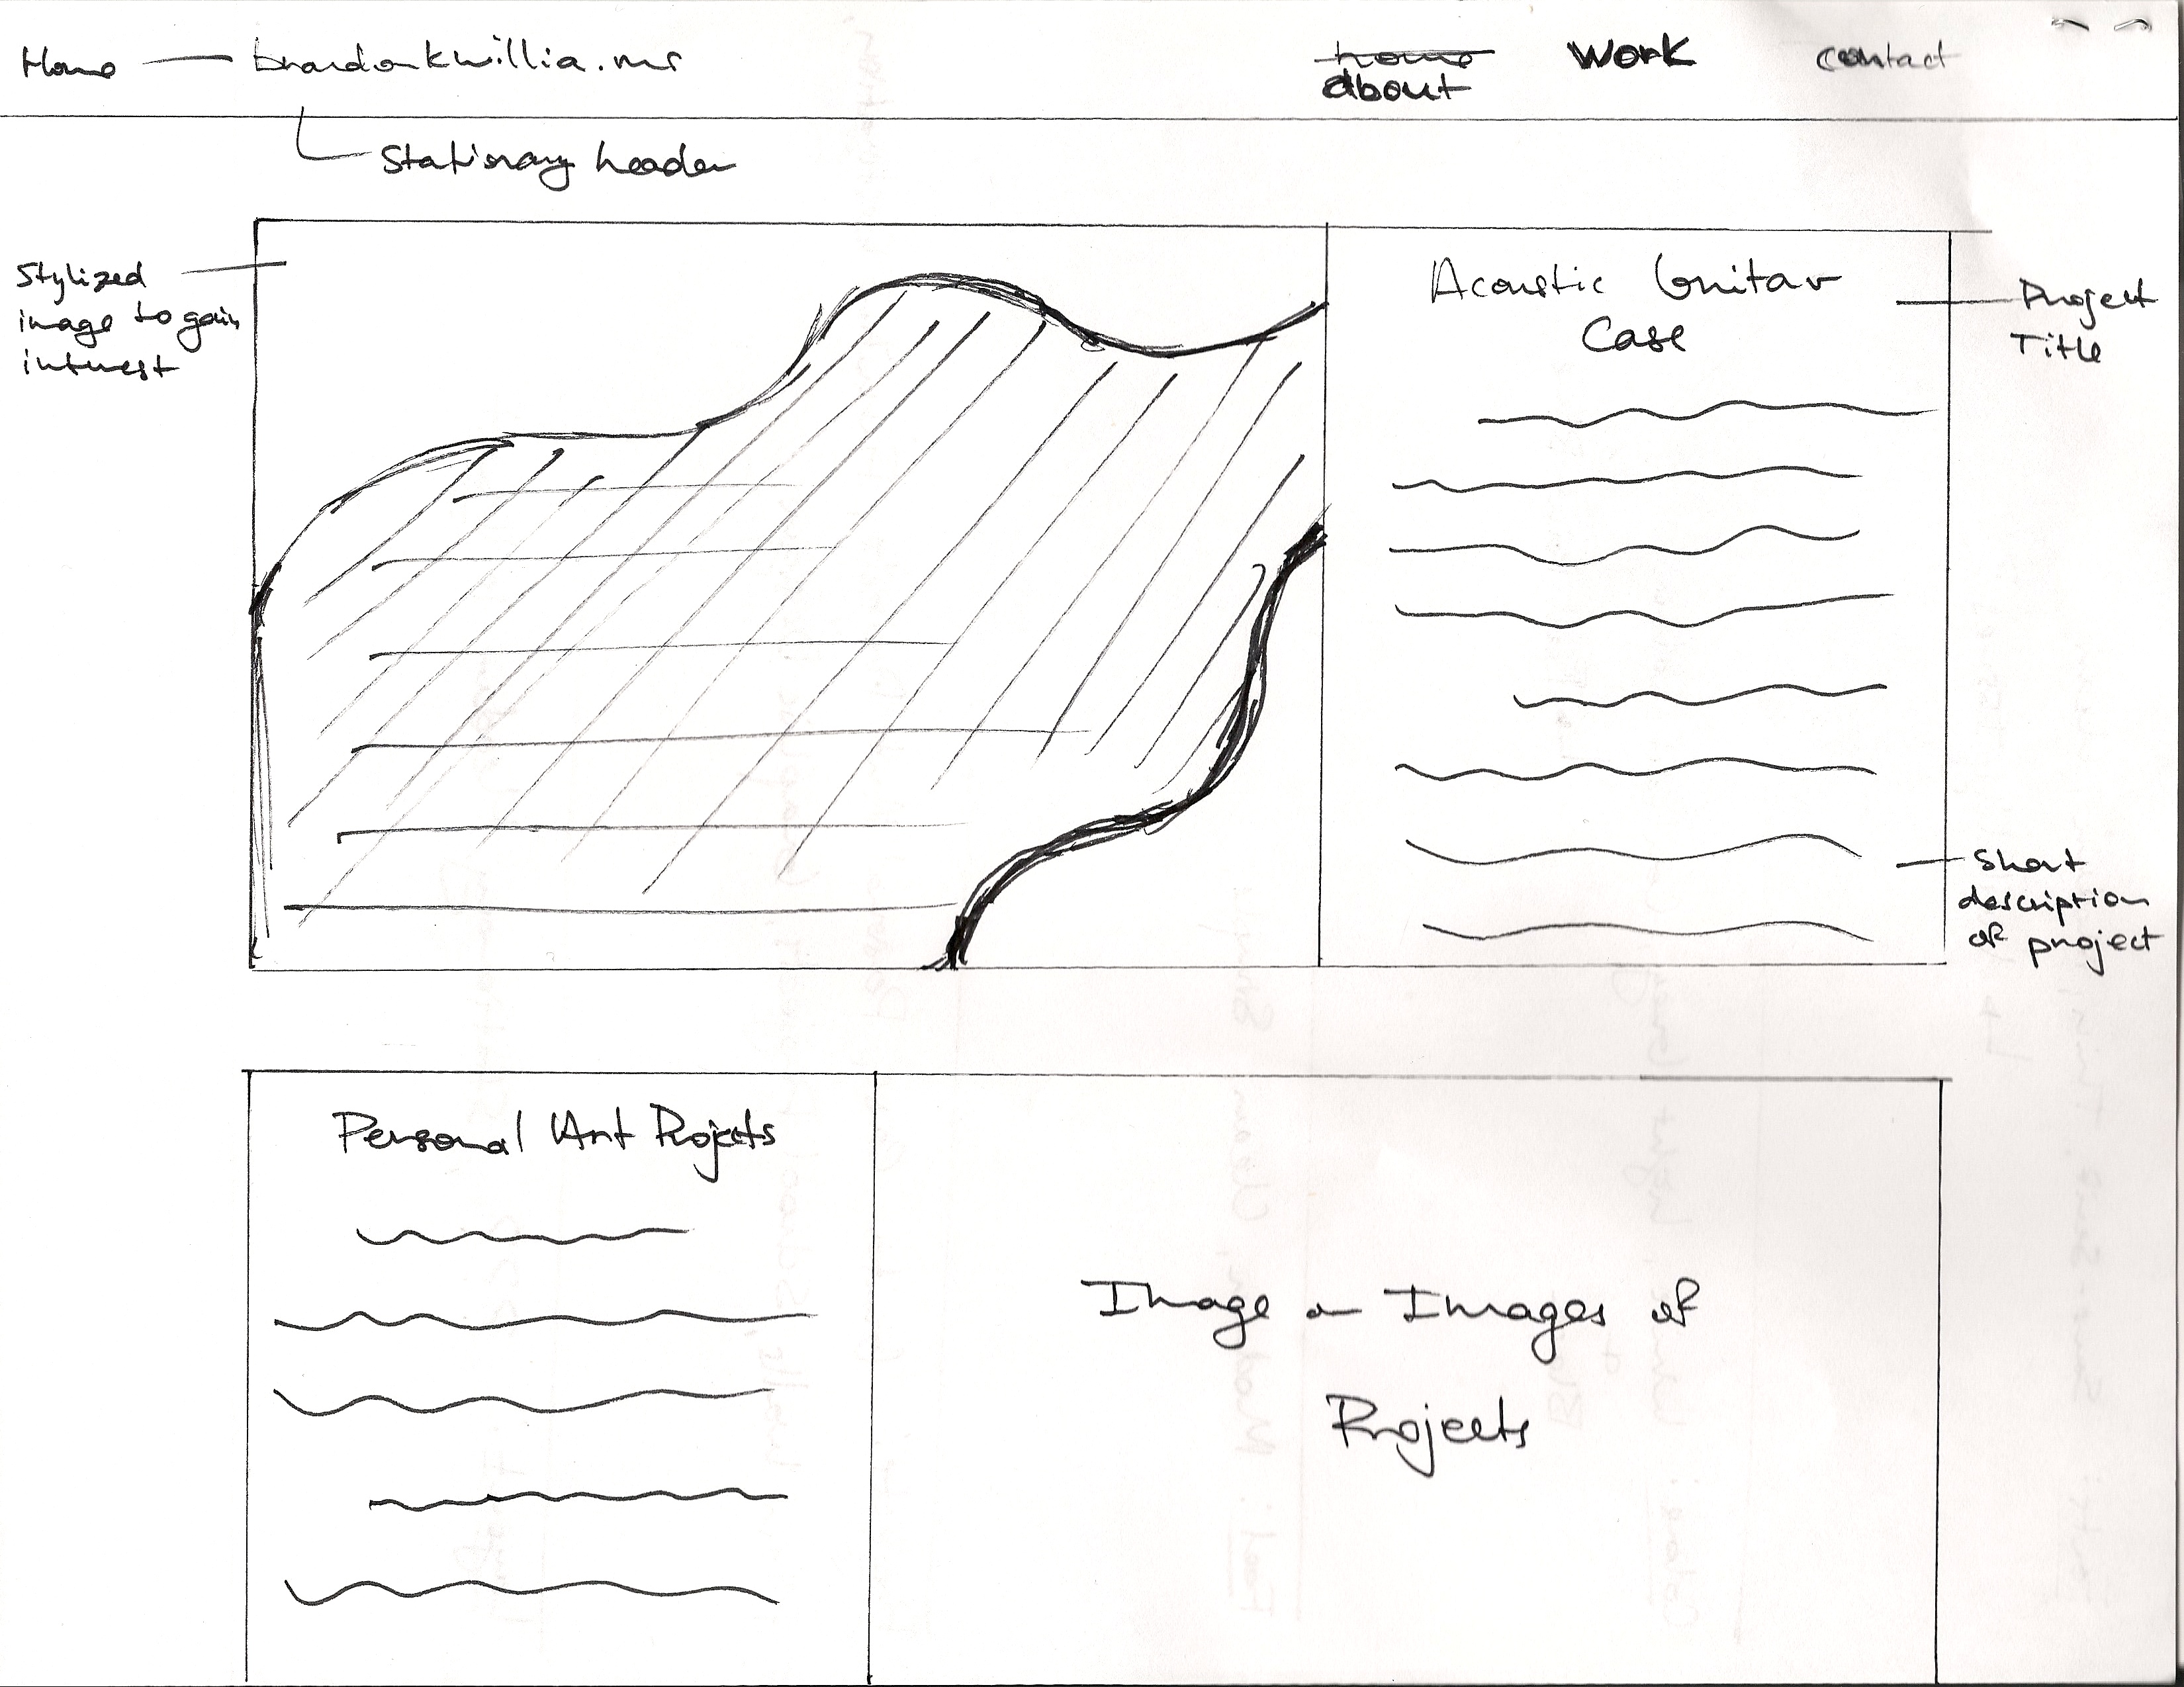 Home — brandonkwillia.ms
home
about
WORK
contact
Stationary header
Stylized
image to gain
interest
Acoustic Guitar
Case
Project
Title
Short
description
of project
Personal Art Projects
Image or Images of
Projects